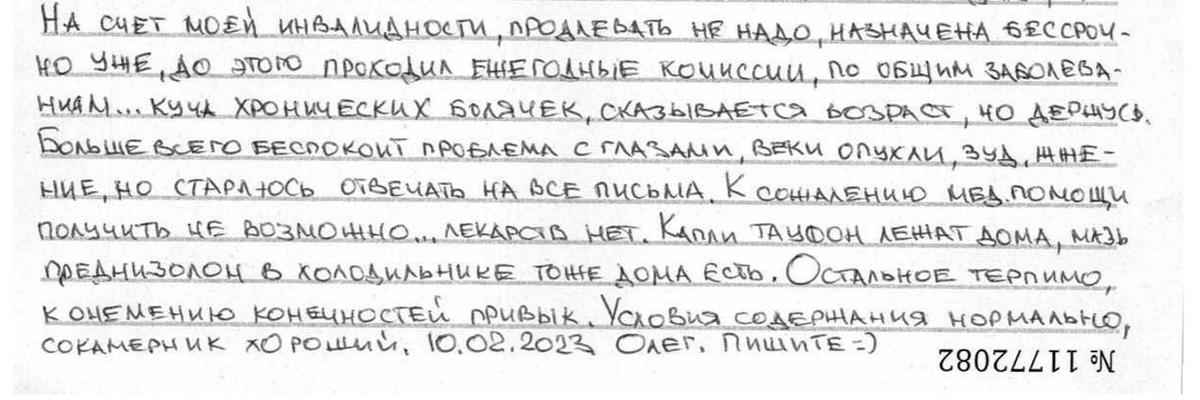 На счет моей инвалидности, продлевать не надо, назначена бессроч-
но уже, до этого проходил ежегодные комиссии, по общим заболева-
ниям... куча хронических болячек, сказывается возраст, но держусь.
Больше всего беспокоит проблема с глазами, веки опухли, зуд, жже-
ние, но стараюсь отвечать на все письма. К сожалению мед.помощи
получить не возможно... лекарств нет. Капли тауфон лежат дома, мазь
преднизолон в холодильнике тоже дома есть. Остальное терпимо,
к онемению конечностей привык. Условия содержания нормально,
сокамерник хороший. 10.02.2023 Олег. Пишите =)
№ 11772082